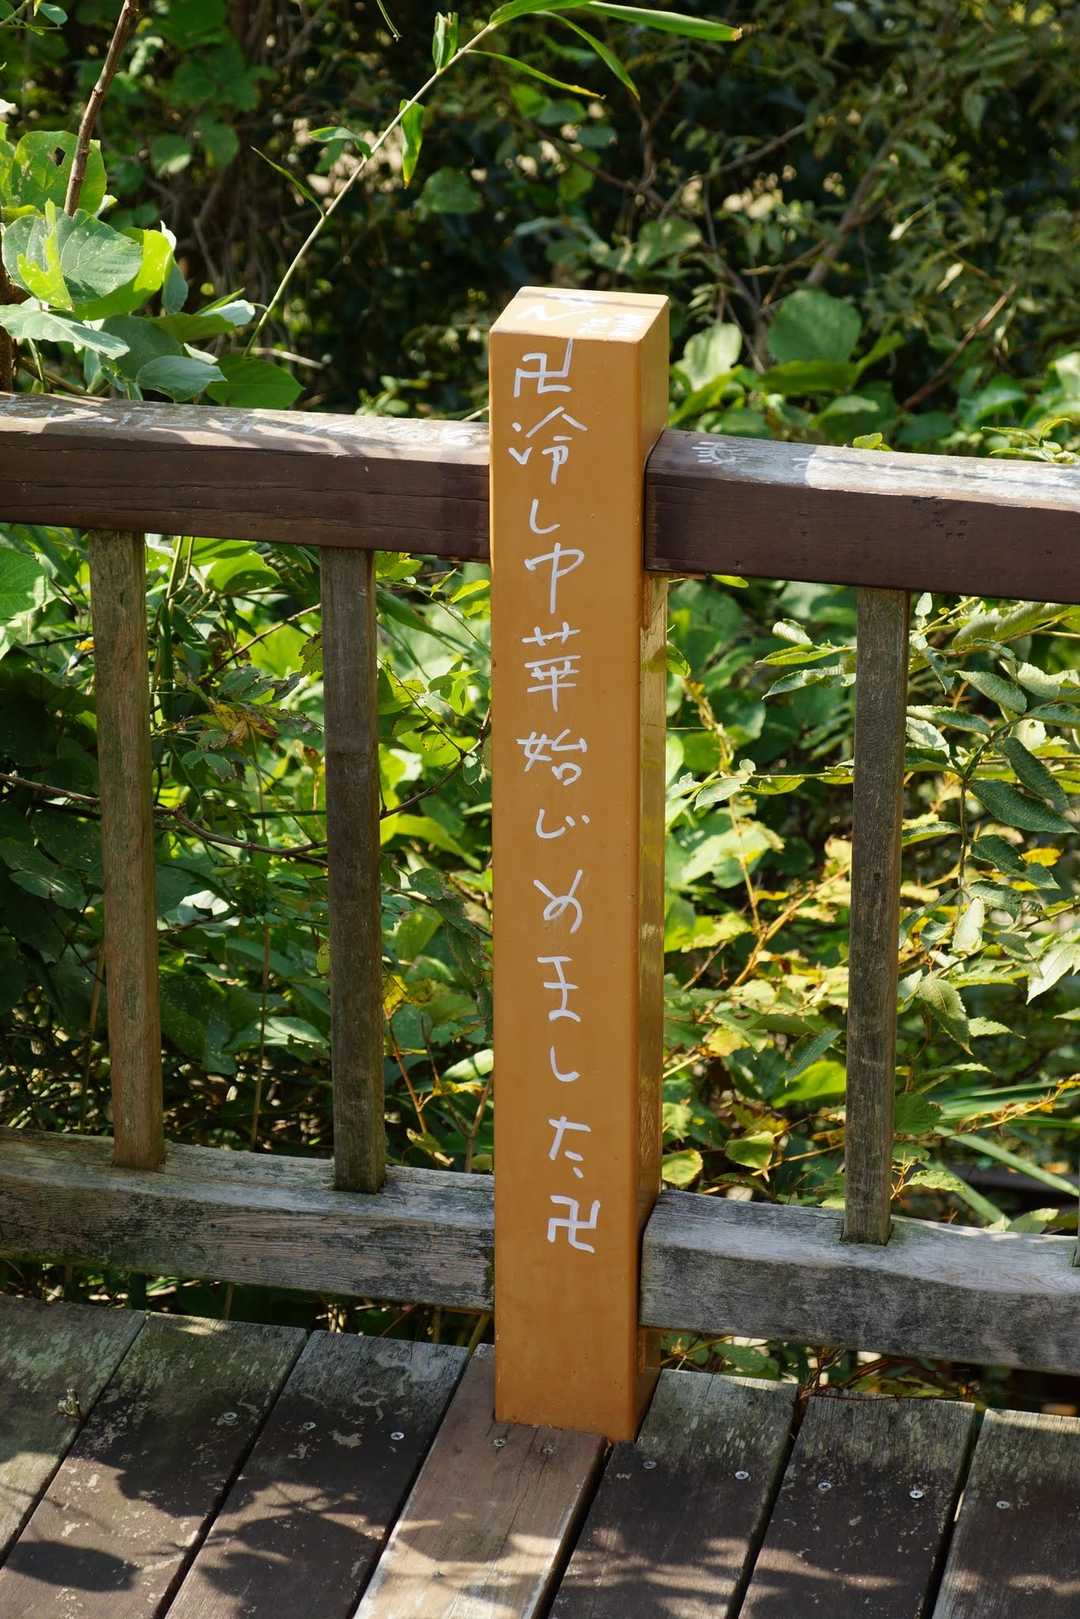 卍冷し中華始じめました卍